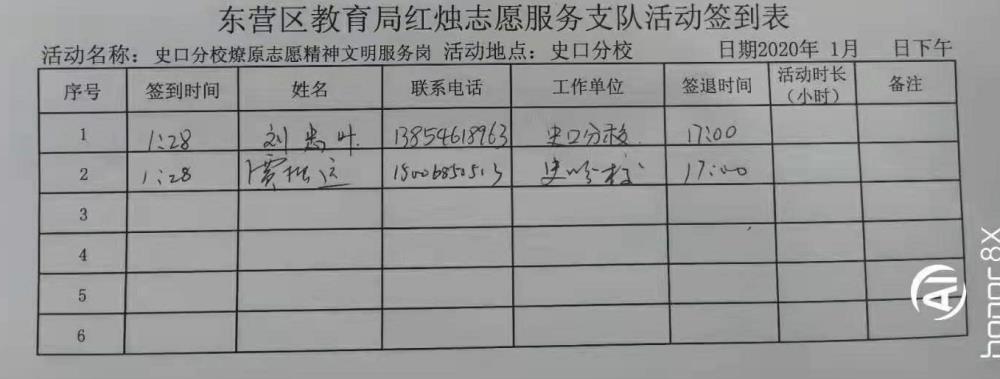 东营区教育局红烛志愿服务支队活动签到表
活动名称：史口分校燎原志愿精神文明服务岗 活动地点：史口分校 日期2020年 1月 日下午
序号 签到时间 姓名 联系电话 工作单位 签退时间 活动时长（小时） 备注
1 1:28 刘 叶 13854618963 史口分校 17:00
2 1:28 史口分校 17:00
3
4
5
6
AI
honor 8X